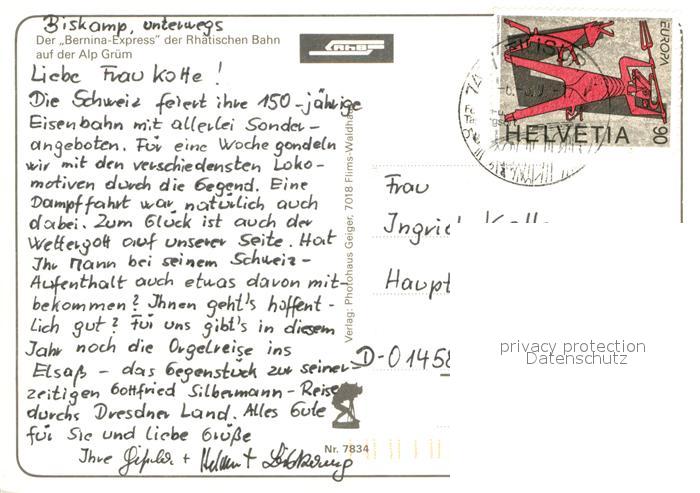 Biskamp, unterwegs
Der „Bernina-Express" der Rhätischen Bahn
auf der Alp Grüm
RhB
Liebe Frau Kotte!
Die Schweiz feiert ihre 150-jährige
Eisenbahn mit allerlei Sonder-
angeboten. Für eine Woche gondeln
wir mit den verschiedensten Loko-
motiven durch die Gegend. Eine
Dampffahrt war natürlich auch
dabei. Zum Glück ist auch der
Wettergott auf unserer Seite. Hat
Ihr Mann bei seinem Schweiz-
Aufenthalt auch etwas davon mit-
bekommen? Ihnen geht's hoffent-
lich gut? Für uns gibt's in diesem
Jahr noch die Orgelreise ins
Elsaß - das Gegenstück zur seiner-
zeitigen Gottfried Silbermann-Reise
durchs Dresdner Land. Alles Gute
für Sie und liebe Grüße
Ihre + Helmut Biskamp
Verlag: Photohaus Geiger, 7018 Flims-Waldhaus
Nr. 7834
EUROPA
HELVETIA 90
Frau
Ingrid Kotte
Haupt
D-0145
privacy protection
Datenschutz